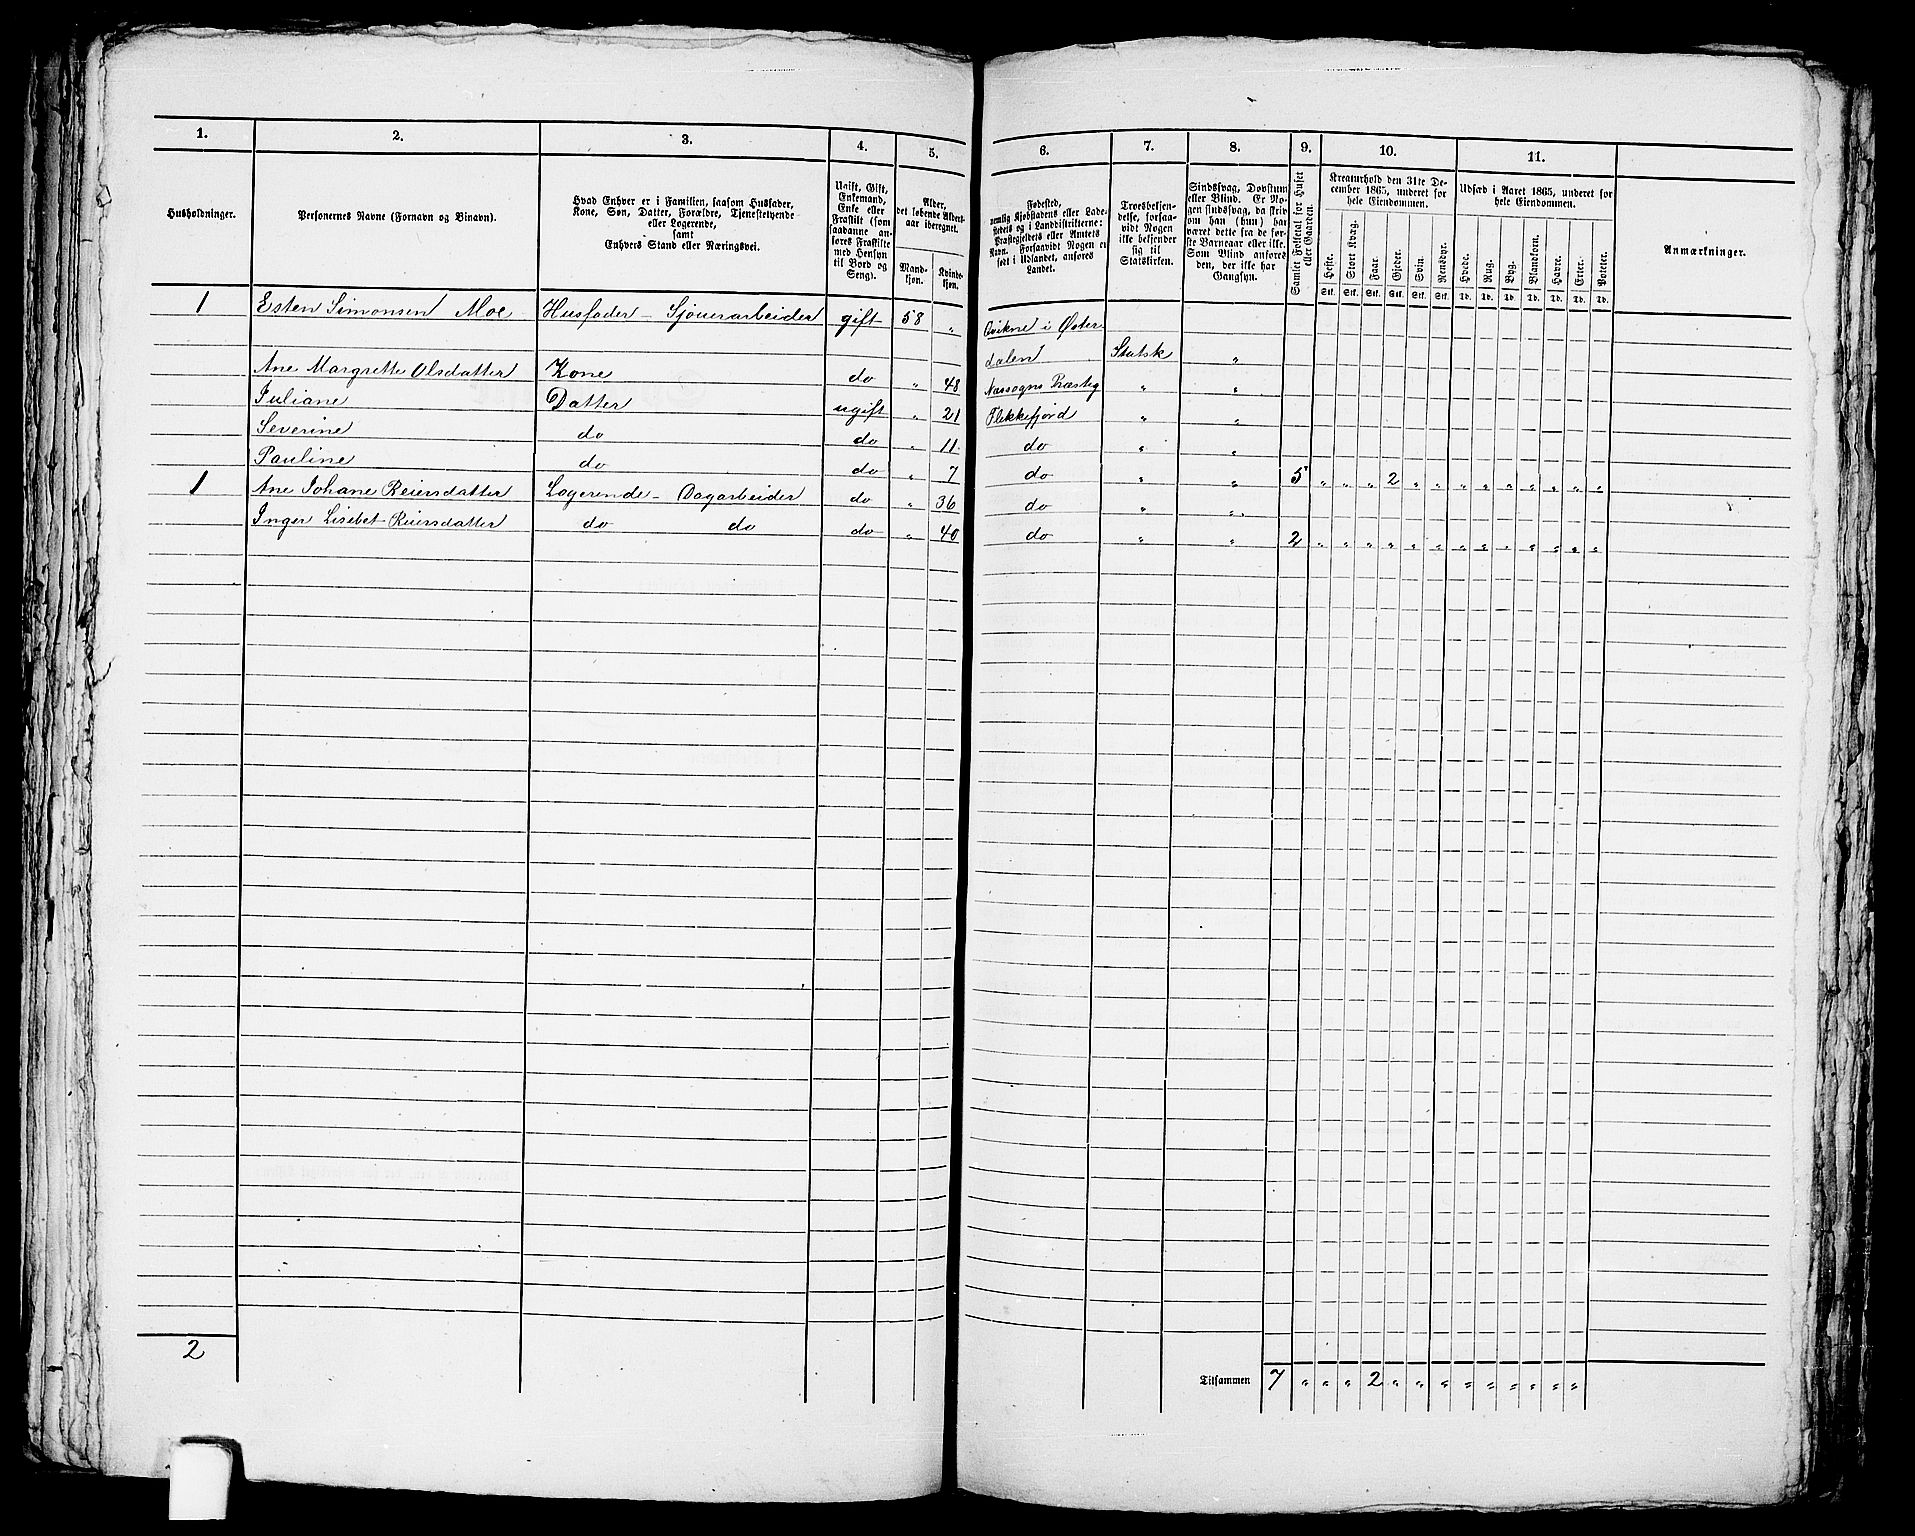 1. 2. 3. 4. 5. 6. 7. 8. 9. 10. 11.
Husholdninger.
Personernes Navne (Fornavn og Binavn).
Hvad Enhver er i Familien, saasom Husfader,
Kone, Søn, Datter, Forældre, Tjenestetyende
eller Logerende,
samt
Enhvers Stand eller Næringsvei.
Ugift, Gift,
Enkemand,
Enke eller
Fraskilt (som
saadanne an-
føres Fraskilte
med Hensyn
til Bord og
Seng).
Alder,
det løbende Alders-
aar iberegnet.
Mand-
kjøn.
Kvinde-
kjøn.
Fødested,
nemlig Kjøbstadens eller Lade-
stedets og i Landdistrikterne:
Præstegjeldets eller Amtets
Navn. Forsaavidt Nogen er
født i Udlandet, anføres
Landet.
Troesbekjen-
delse, forsaa-
vidt Nogen
ikke bekjender
sig til
Statskirken.
Sindssvag, Døvstum
eller Blind. Er No-
gen sindssvag, da skriv
om han (hun) har
været dette fra de før-
ste Barneaar eller ikke.
Som Blind anføres
den, der ikke har
Gangsyn.
Samlet Folketal for Huset
eller Gaarden.
Kreaturhold den 31te De-
cember 1865, underet for
hele Eiendommen.
Heste. Stort Kvæg. Faar. Gjeder. Svin. Rensdyr.
Stk. Stk. Stk. Stk. Stk. Stk.
Udsæd i Aaret 1865, underet for
hele Eiendommen.
Hvede. Rug. Byg. Blandkorn. Havre. Erter. Poteter.
Td. Td. Td. Td. Td. Td. Td.
Anmærkninger.
1 Esten Simonsen Moe Husfader - Sjouerarbeider gift 58 " Qvikne i Øster
dalen Statsk "
Ane Margrette Olsdatter Kone do " 48 Næssogns Præsteg " "
Juliane Datter ugift " 21 Flekkefjord " "
Severine do do " 11 do " "
Pauline do do " 7 do " " 5 " " " 2 " " " " " " " " "
1 Ane Johane Reiersdatter Logerende - Dagarbeider do " 36 do " "
Inger Lisebet Reiersdatter do do do " 40 do " " 2 " " " " " " " " " " " " "
2
Tilsammen 7 " " " 2 " " " " " " " "